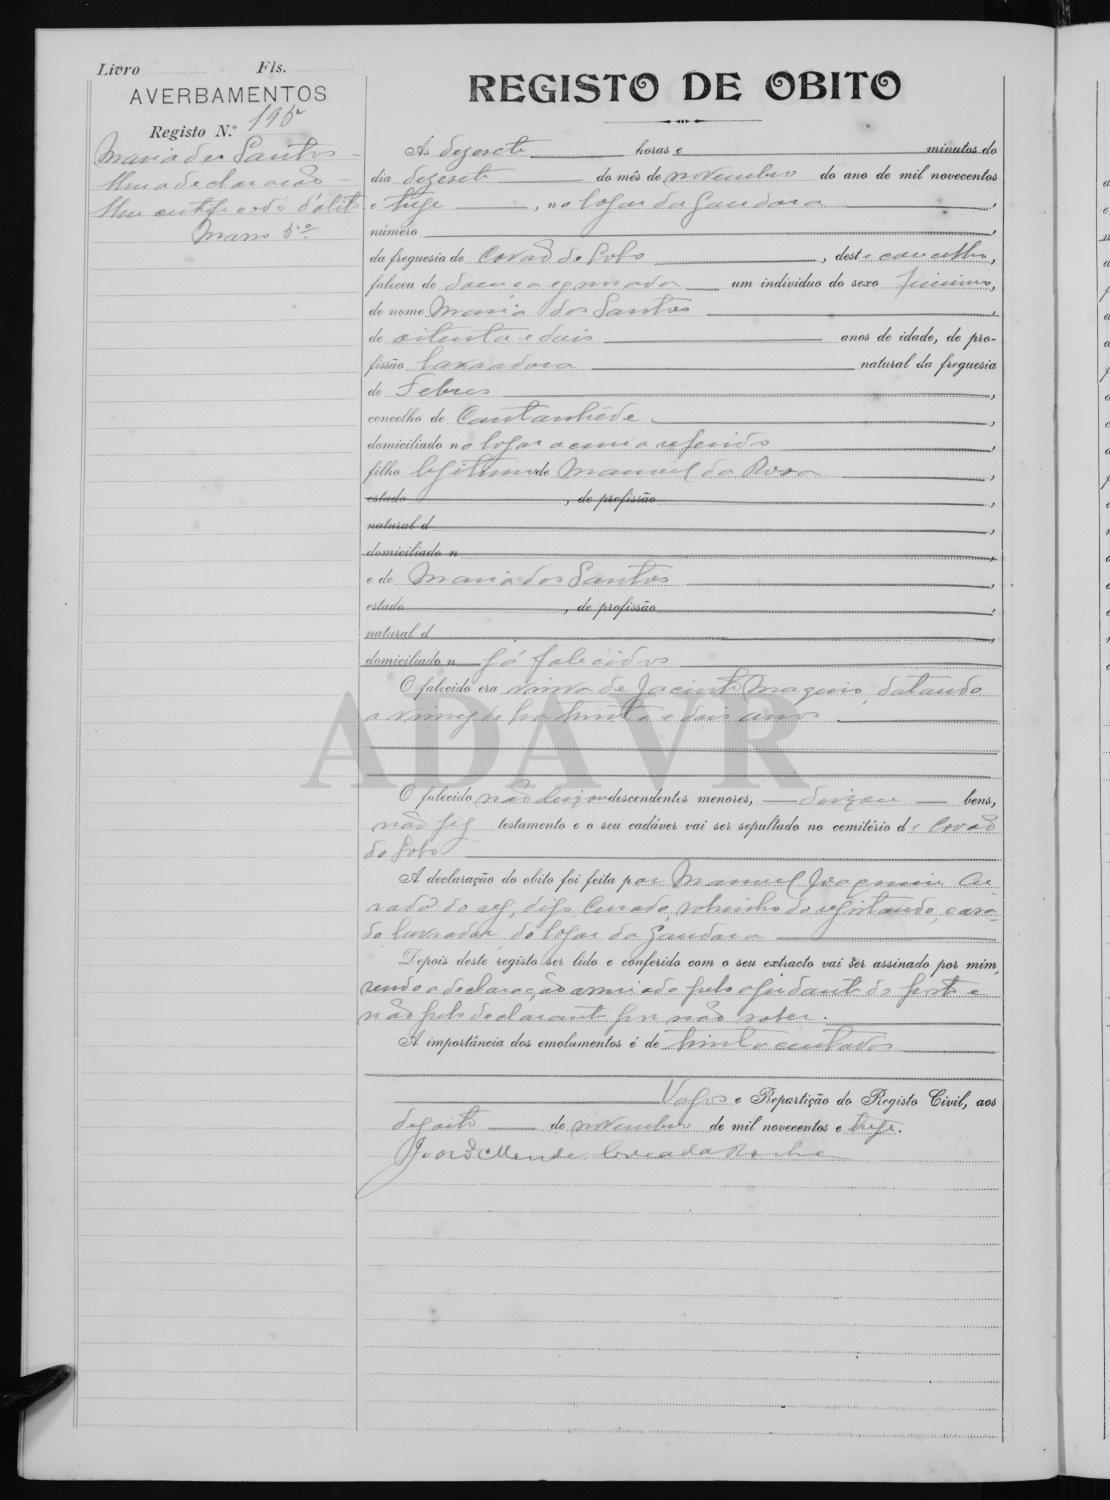 Livro Fls.
AVERBAMENTOS
Registo N.º 195
Maria dos Santos -
Uma declaração -
Um certificado d'obito
Maço 5.º
REGISTO DE OBITO
Ás dezesete horas e minutos do
dia dezesete do mês de novembro do ano de mil novecentos
e treze, no logar da Gandara,
número
da freguesia de Covão do Lobo, deste concelho,
faleceu de doença ignorada um individuo do sexo feminino,
de nome Maria dos Santos
de oitenta e dois anos de idade, de pro-
fissão lavradora natural da freguesia
de Febres,
concelho de Cantanhêde,
domiciliado no logar acima referido
filho legitimo de Manuel da Rosa,
estado, de profissão,
natural d,
domiciliado n,
e de Maria dos Santos,
estado, de profissão,
natural d,
domiciliado n já falecidos
O falecido era viuva de Jacinto Maquis, datando
a viuvez de ha trinta e dois anos
ADAVR
O falecido não deixou descendentes menores, deixou bens,
não fez testamento e o seu cadáver vai ser sepultado no cemitério de Covão
do Lobo
A declaração do obito foi feita por Manuel Joaquim
digo, Curado, sobrinho do registando, casa-
do, lavrador, do logar da Gandara
Depois deste registo ser lido e conferido com o seu extracto vai ser assinado por mim,
sendo a declaração pelo ajudante do posto e
não pelo declarante por não saber.
A importância dos emolumentos é de trinta centavos
Vagos e Repartição do Registo Civil, aos
dezoito de novembro de mil novecentos e treze.
João Mendes Correia da Rocha